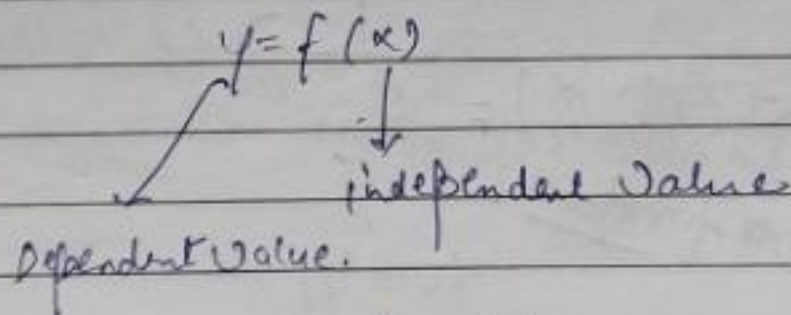 y = f(x)
independent value
Dependent value.